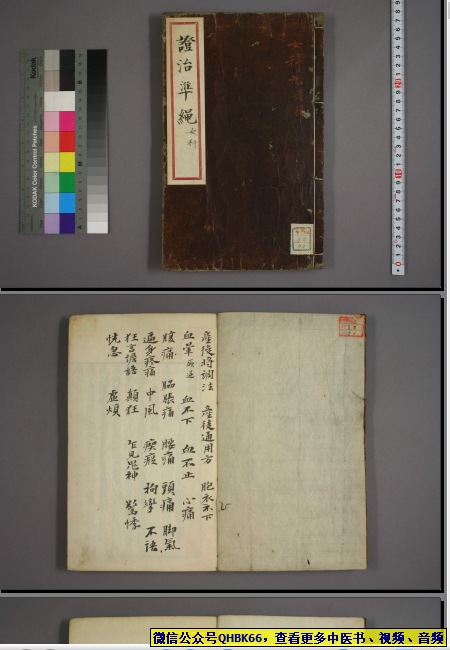 Kodak
KODAK Color Control Patches
證治準繩
女科
產後將調法 產後通用方 胞衣不下
血暈 血不下 血不止 心痛
腹痛 腦脹痛 腰痛 頭痛 脚氣
遍身疼痛 中風 瘈瘲 拘攣 不語
狂言譫語 顛狂 乍見鬼神 驚悸
恍惚 虛煩
微信公众号QHBK66，查看更多中医书、视频、音频